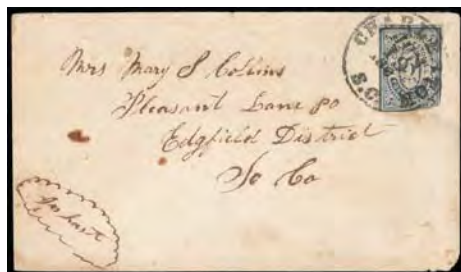 CHARL
S.C.
Mrs Mary S Collins
Pleasant Lane PO
Edgfield District
So Ca
In hast